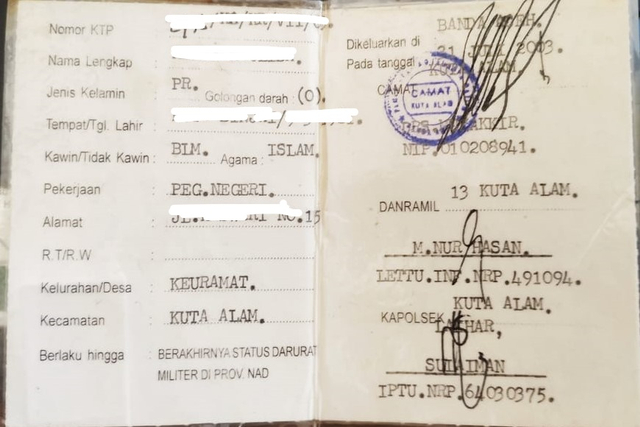 Nomor KTP
Nama Lengkap :
Jenis Kelamin : PR. Golongan darah : (O).
Tempat/Tgl. Lahir :
Kawin/Tidak Kawin : BLM. Agama : ISLAM.
Pekerjaan : PEG.NEGERI.
Alamat : NO.15
R.T/R.W :
Kelurahan/Desa : KEURAMAT.
Kecamatan : KUTA ALAM.
Berlaku hingga : BERAKHIRNYA STATUS DARURAT
MILITER DI PROV. NAD
BANDA ACEH.
Dikeluarkan di
Pada tanggal 21 JULI 2003.
ALAM.
CAMAT
CAMAT
KUTA ALAM
NIP.010208941.
13 KUTA ALAM.
DANRAMIL
M.NUR HASAN.
LETTU.INF.NRP.491094.
KUTA ALAM.
KAPOLSEK
SULAIMAN
IPTU.NRP.64030375.